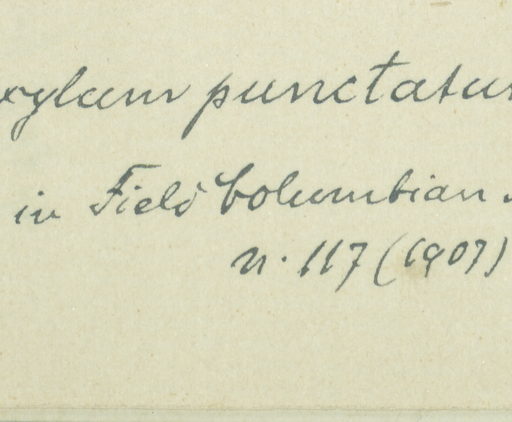 xylum punctatu
in Field Columbian
n. 117 (1907)